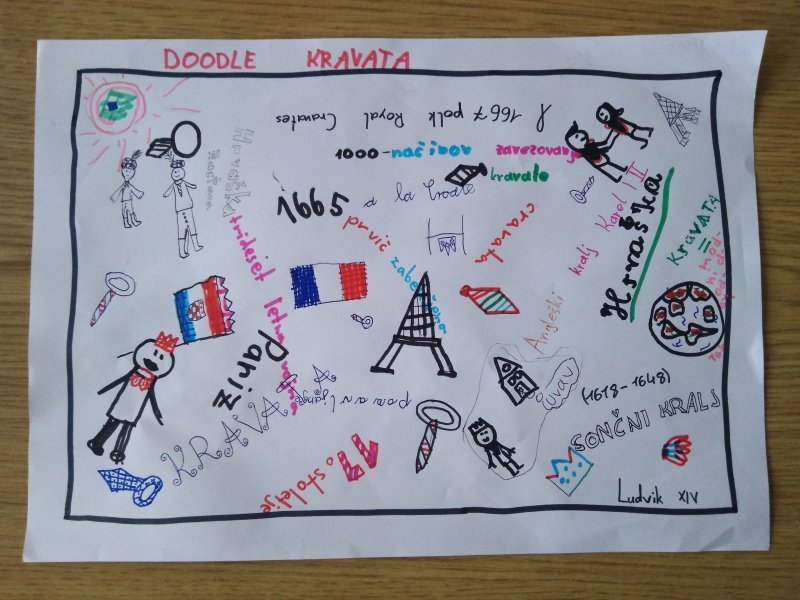 DOODLE KRAVATA
1667 polk Royal Cravates
1000-načinov zavezovanja
kravate
1665
a la
cravata
prvič zabeležena
Hrvaška
trideset letna vojna
kralj Karel II
Hrvaška
KRAVATA
=
Pariz
Angleški
dvor
(1618-1648)
KRAVATA
ponavljanje
17. stoletje
SONČNI KRALJ
Ludvik XIV